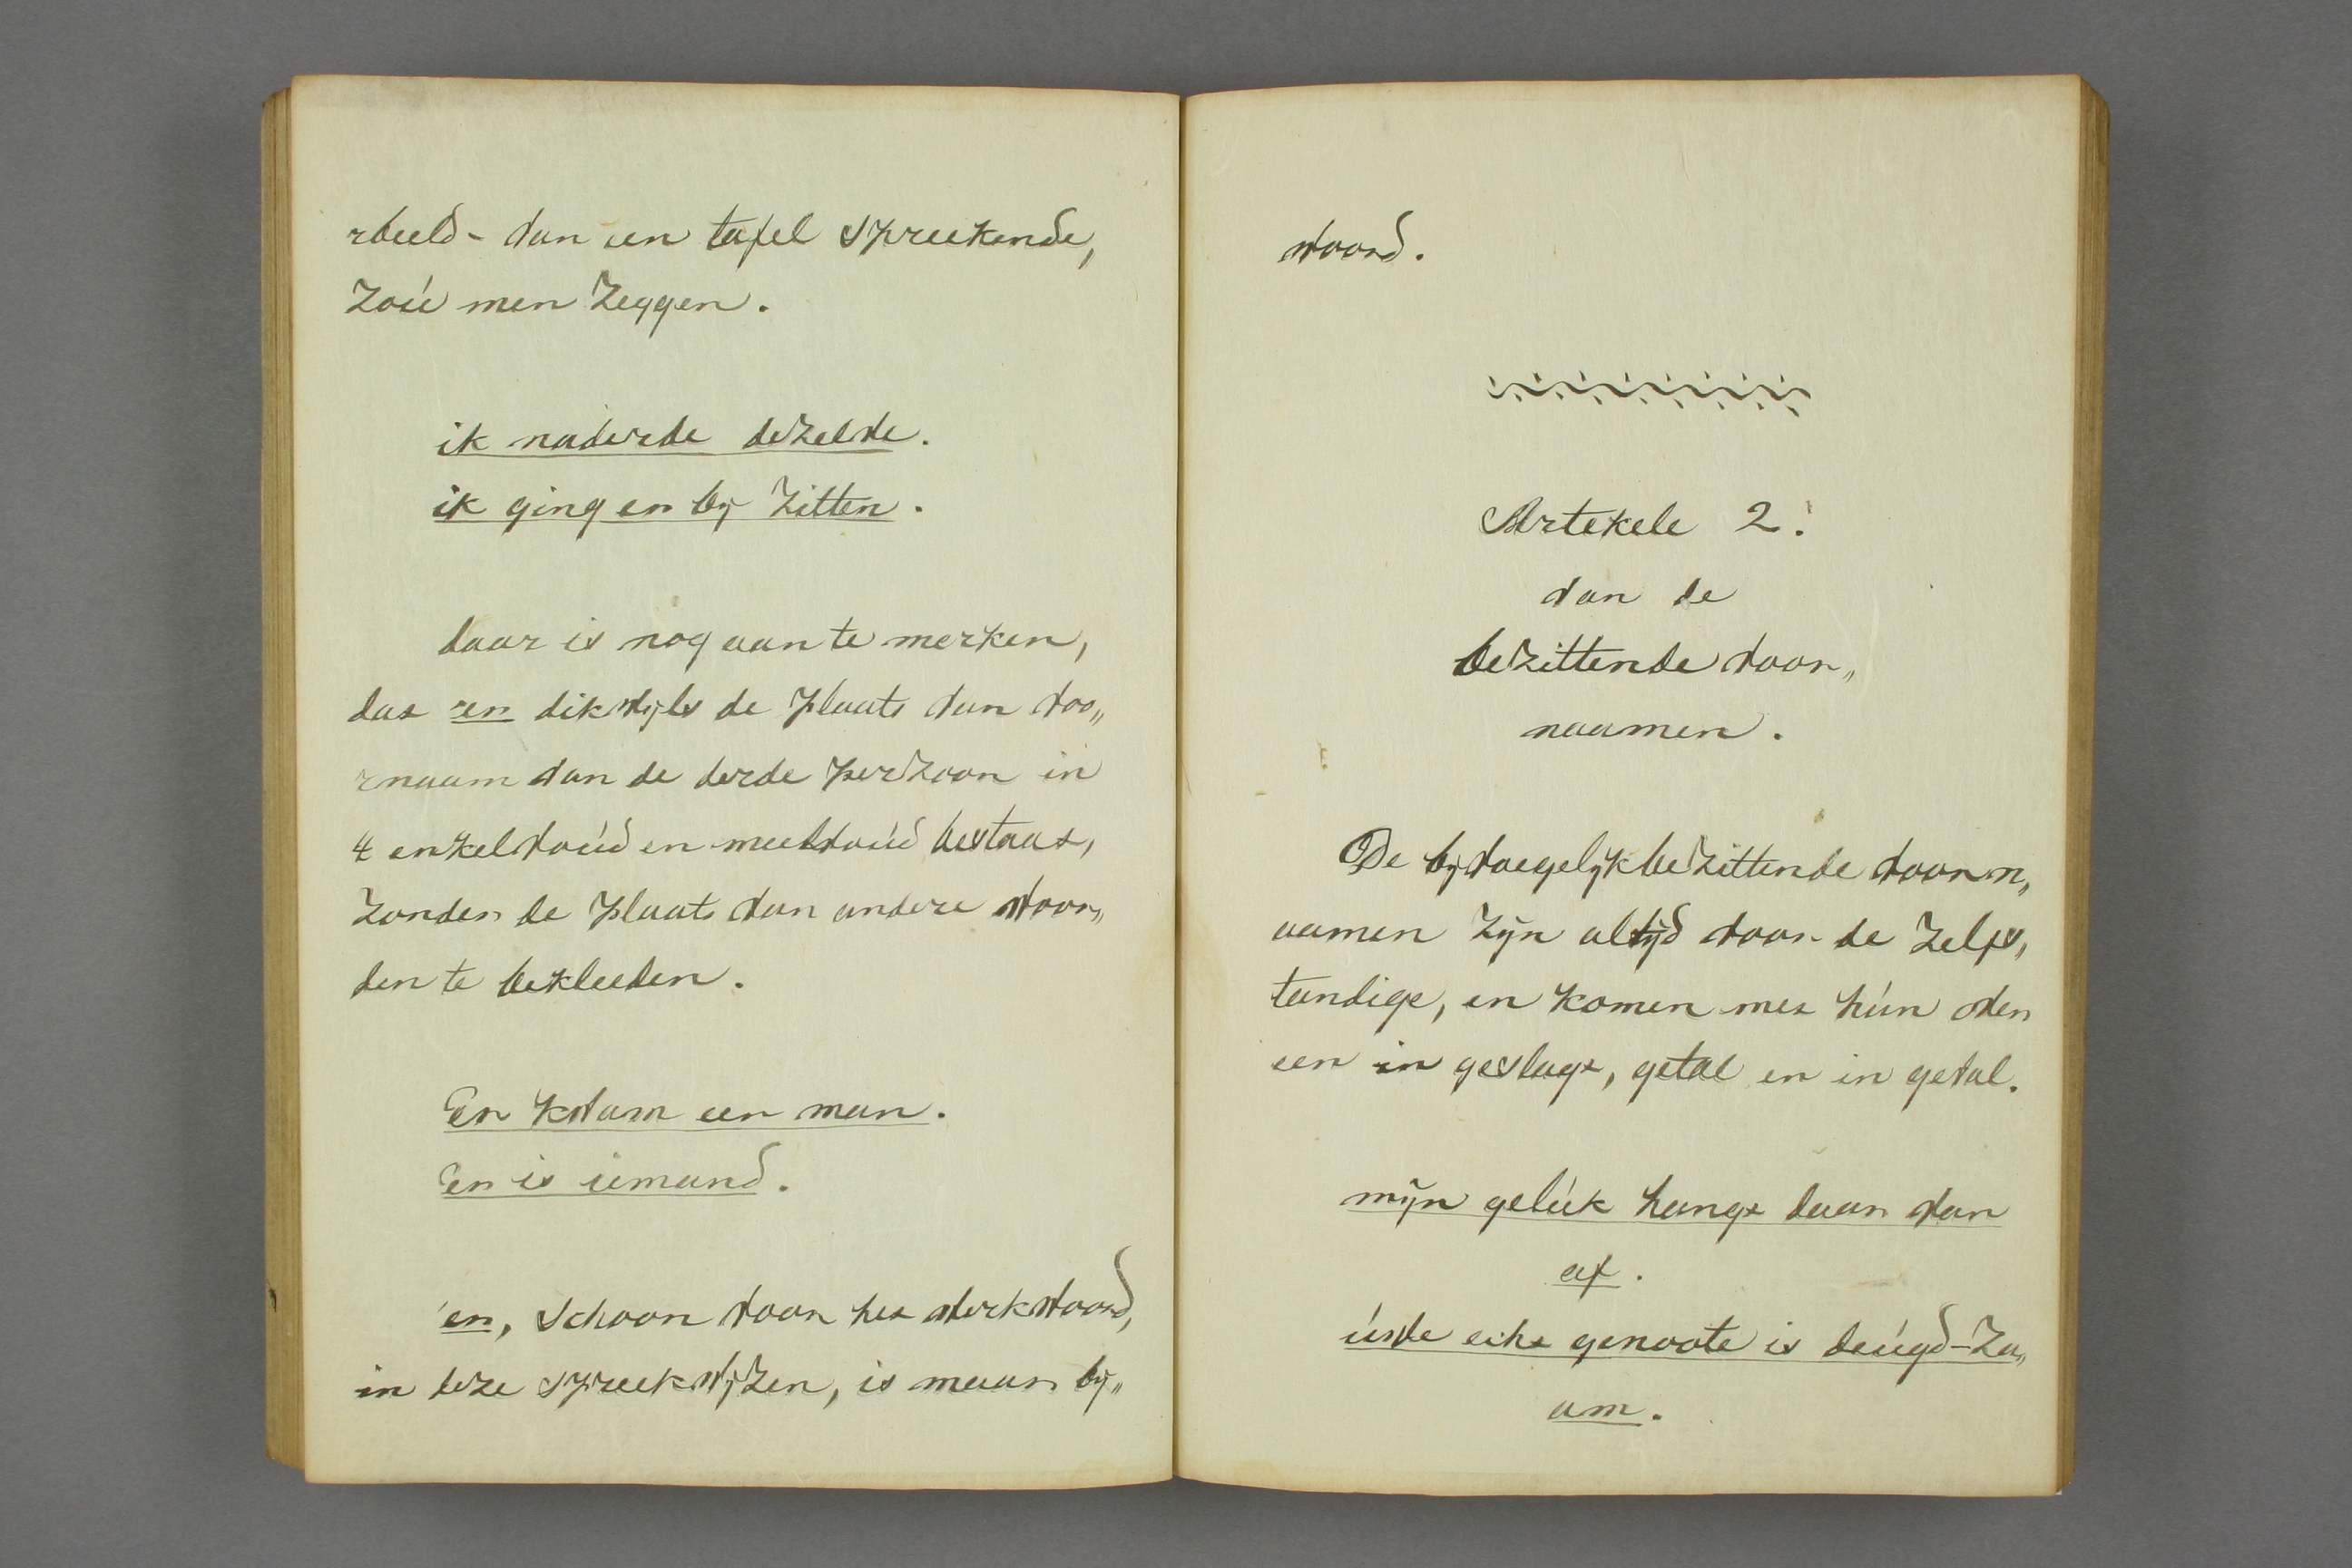 rbeeld - van een tafel spreekende,
zoú men zeggen.
ik naderde dezelve.
ik ging er bij zitten.
daar is nog aan te merken,
dat er dikwijls de plaats van voo„
rnaam van de derde perzoon in
't enkelvoúd en meelvoúd bestaat,
zonder de plaats van andere woor„
den te bekleeden.
Er kwam een man.
Er is iemand.
er, schoon voor het werkwoord,
in deze spreekwijzen, is maar bij„
woord.
Artekele 2.
van de
bezittende voor„
naamen.
De bijvoegelijk bezittende voorn„
aamen zijn altijd voor de zelfs„
tandige, en komen met hún over
een in geslagt, getal en in geval.
mijn gelúk hangt daar van
af.
úwde egte genoote is deúgd-za„
am.